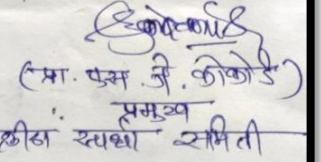 (प्रा. एस. जे. कोकोडे)
प्रमुख
स्पर्धा समिती